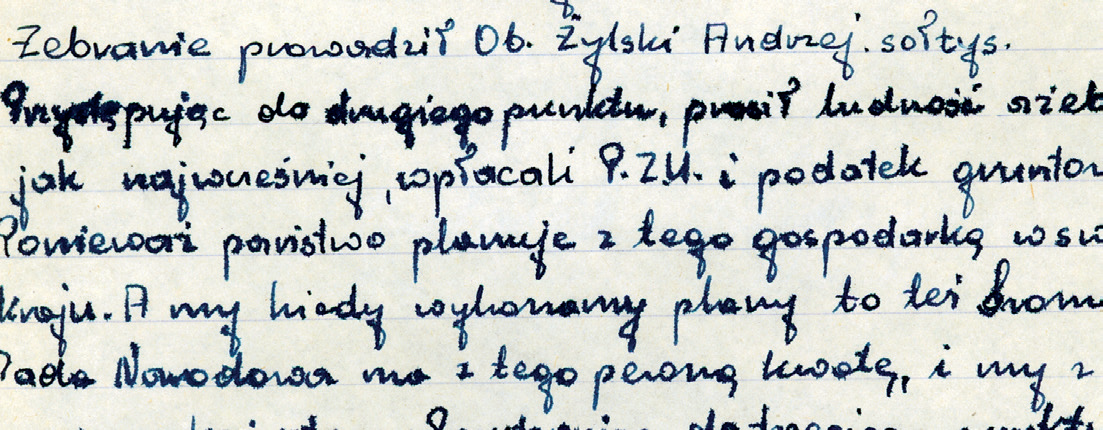 Zebranie prowadził Ob. Żylski Andrzej. sołtys.
Przystępując do drugiego punktu, prosił ludność ażeb
jak najwcześniej, wpłacali P.Z.U. i podatek gruntow
Ponieważ państwo planuje z tego gospodarką w sw
kraju. A my kiedy wykonamy plany to też Grom
Rada Narodowa ma z tego pewną kwotę, i my z
do trzeciego punktu